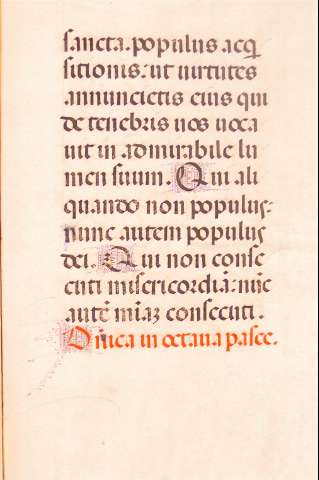 sancta.populus acq
sitionis: ut uirtutes
annuncietis eius qui
de tenebris uos uoca
uit in admirabile lu
men suum. Qui ali
quando non populus:
nunc autem populus
dei. Qui non conse
cuti misericordia: nūc
autē mīaz consecuti.
Dnīca in octaua pasce.